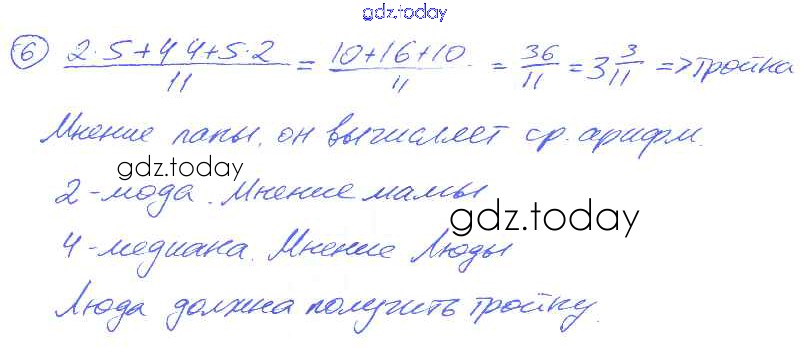 gdz.today
6 2·5+4 4+5·2/11 = 10+16+10/11 = 36/11 = 3 3/11 => тройка
Мнение папы, он вычисляет ср. арифм.
gdz.today
2-мода. Мнение мамы
gdz.today
4-медиана. Мнение Люды
Люда должна получить тройку.